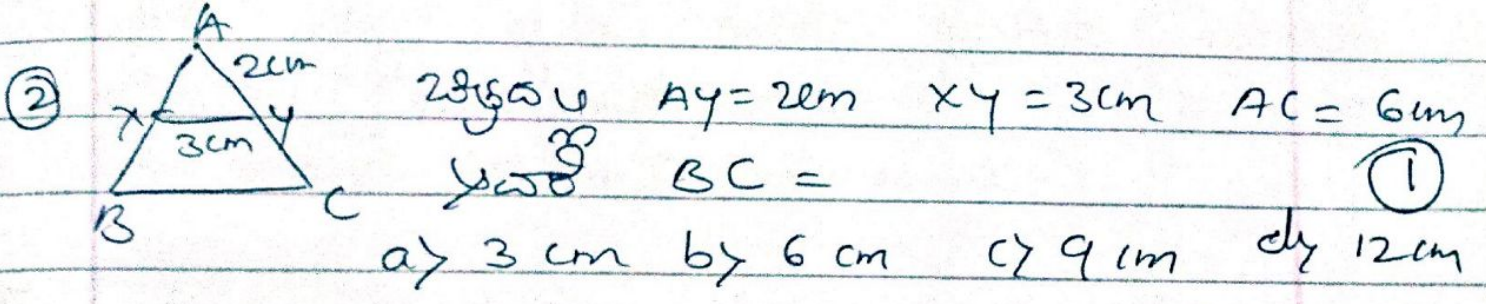 ②
A
2cm
X Y
3cm
B C
AY = 2cm XY = 3cm AC = 6cm
BC = ①
a) 3 cm b) 6 cm c) 9 cm d) 12 cm